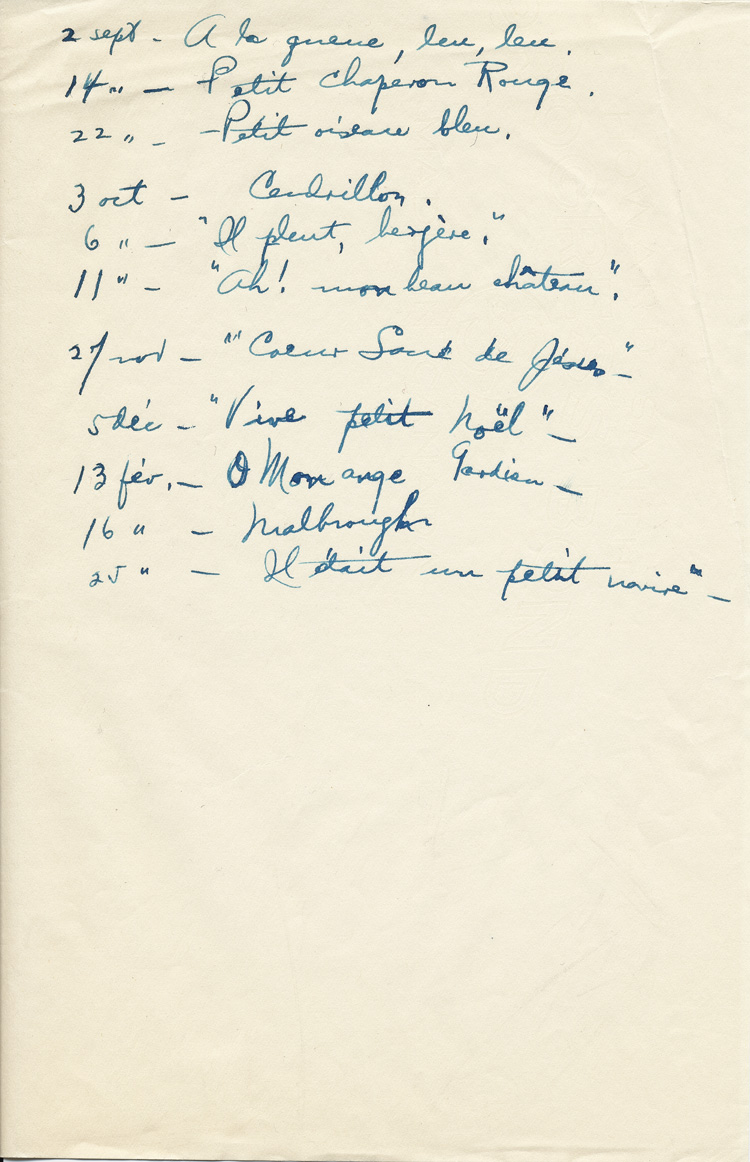 2 sept - A la queue, leu, leu.
14 " - Petit Chaperon Rouge.
22 " - Petit oiseau bleu.
3 oct - Cendrillon.
6 " - "Il pleut, bergère."
11 " - "Ah! mon beau château".
27 nov - "" Coeur Sacré de Jésus" -
5 déc - "Vive petit Noël" -
13 fév. - O Mon ange Gardien -
16 " - Malbrough
25 " - Il était un petit navire" -